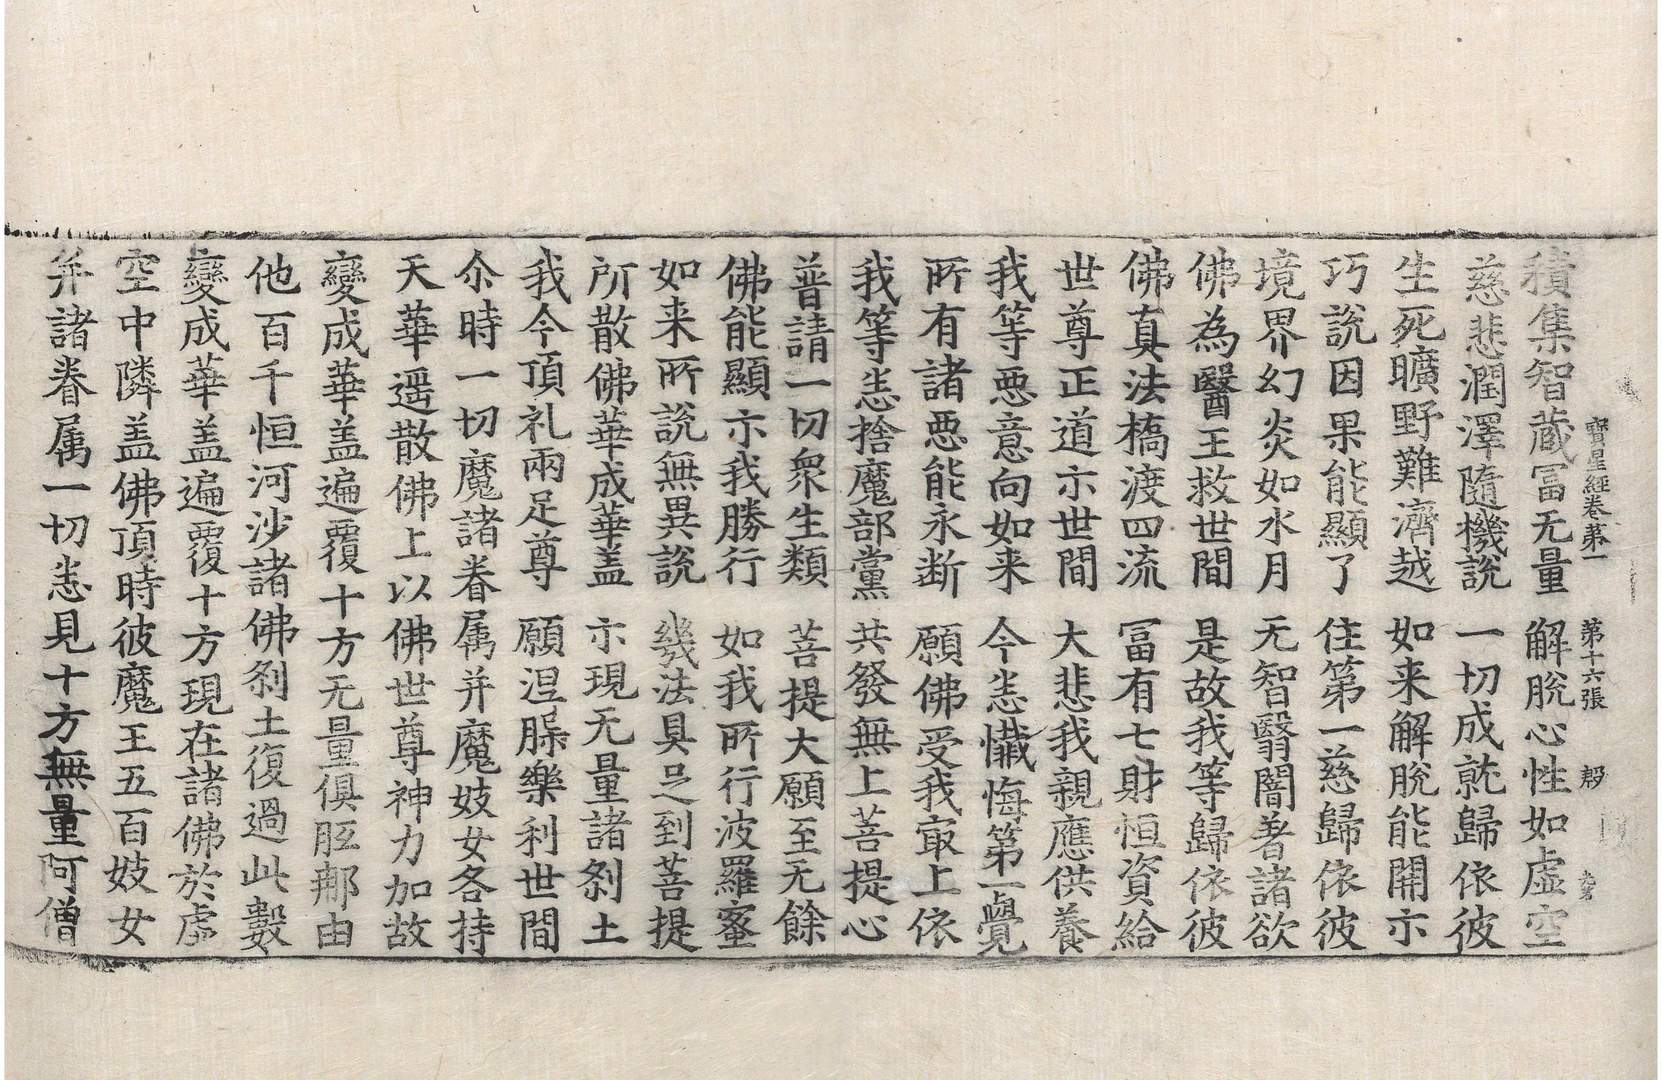 寶星經卷第一 第十六張 㔟
積集智蔵冨无量 解脫心性如虛空
慈悲潤澤隨機說 一切成就歸依彼
生死曠野難濟越 如来解脫能開示
巧說因果能顯了 住第一慈歸依彼
境界幻炎如水月 无智翳闇著諸欲
佛為醫王救世間 是故我等歸依彼
佛真法橋渡四流 冨有七財恒資給
世尊正道示世間 大悲我親應供養
我等惡意向如来 今恙懺悔第一覺
所有諸惡能永断 願佛受我㝡上依
我等恙捨魔部黨 共發無上菩提心
普請一切衆生類 菩提大願至无餘
佛能顯示我勝行 如我所行波羅蜜
如来所說無異說 㡬法具足到菩提
所散佛華成華盖 示現无量諸刹土
我今頂礼兩足尊 願涅槃樂利世間
尒時一切魔諸眷属并魔妓女各持
天華遥散佛上以佛世尊神力加故
變成華盖遍覆十方无量俱胝那由
他百千恒河沙諸佛刹土復過此數
變成華盖遍覆十方現在諸佛於虛
空中隣盖佛頂時彼魔王五百妓女
并諸眷属一切恙見十方無量阿僧